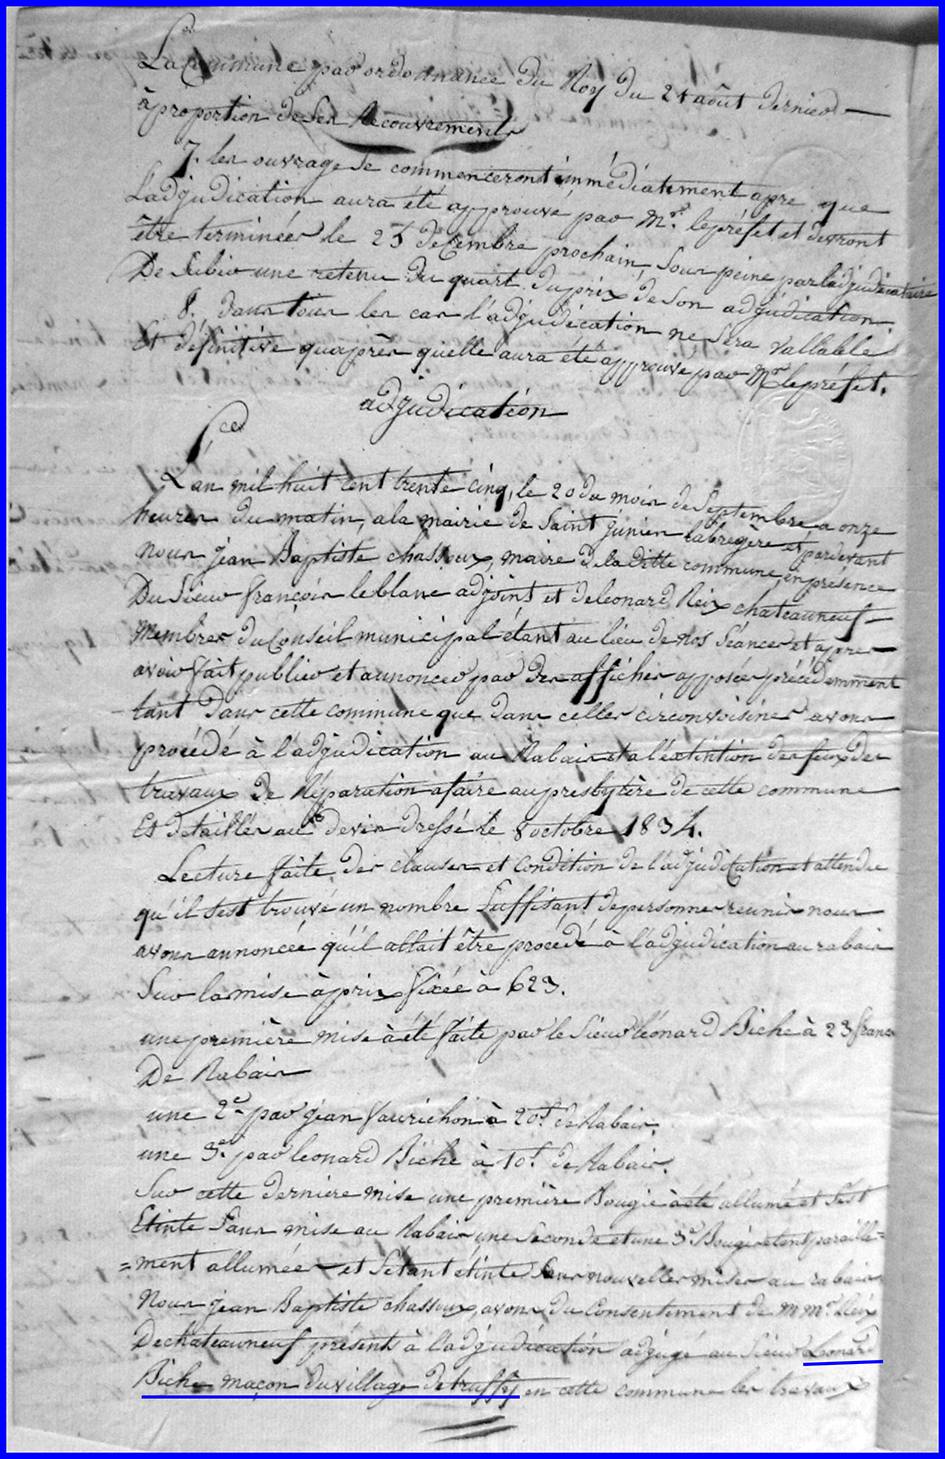 La Commune par ordonnance du Roy du 24 août dernier
à proportion de ses Recouvrements
7. les ouvrage se commenceront immédiatement apre que
L'adjudication aura été approuvé par Mr. le préfet et devront
être terminées le 25 décembre prochain, sous peine par l'adjudicataire
De Subir une retenu du quart du prix de son adjudication.
8. dans tous les cas l'adjudication ne sera vallable
Et définitive quaprès quelle aura été approuve par Mr le préfet.
adjudication
L'an mil huit cent trente cinq, le 20 du mois de Septembre a onze
heures du matin, a la mairie de Saint junien labregère et pardevant
Nous jean Baptiste chassoux, maire de la ditte commune, en presence
Du Sieur françois leblanc adjoint et de leonard Reix chateauneuf
Membres du Conseil municipal étant au lieu de nos séances et apres
avoir fait publier et annoncer par des affiches apposées précédemment
tant dans cette commune que dans celles circonvoisines avons
procédé à l'adjudication au Rabais et a l'extintion des feux des
travaux de Réparation a faire au presbytère de cette commune
Et détaillés au devis dressé le 8 octobre 1834.
Lecture faite des clauses et condition de l'adjudication et attendu
qu'il s'est trouvé un nombre suffisant de personnes reunis nous
avons annoncée qu'il allait être procédé à l'adjudication au rabais
Sur la mise à prix fixée à 623.
une première mise à été faite par le Sieur léonard Biche à 23 francs
De Rabais
une 2e par jean faurichon à 20f. de Rabais.
une 3e par leonard Biche à 10f. de Rabais.
Sur cette derniere mise une première Bougie à été allumé et s'est
Etinte sans mise au Rabais, une seconde et une 3e Bougie etent pareille=
=ment allumées et s'etant étinte sans nouvelles mises au rabais
Nous jean Baptiste chassoux, avons du Consentement de MMrs Reix
De chateauneuf présents à l'adjudication adjugé au Sieur Leonard
Biche maçon du village de truffy en cette commune les travaux